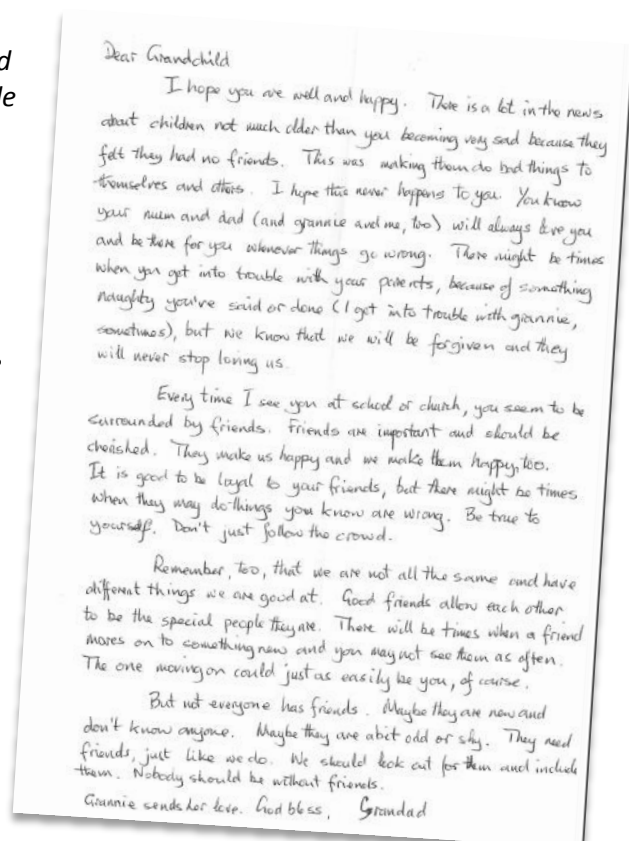 Dear Grandchild
I hope you are well and happy. There is a lot in the news
about children not much older than you becoming very sad because they
felt they had no friends. This was making them do bad things to
themselves and others. I hope this never happens to you. You know
your mum and dad (and grannie and me, too) will always love you
and be there for you whenever things go wrong. There might be times
when you get into trouble with your parents, because of something
naughty you've said or done (I get into trouble with grannie,
sometimes), but we know that we will be forgiven and they
will never stop loving us.
Every time I see you at school or church, you seem to be
surrounded by friends. Friends are important and should be
cherished. They make us happy and we make them happy, too.
It is good to be loyal to your friends, but there might be times
when they may do things you know are wrong. Be true to
yourself. Don't just follow the crowd.
Remember, too, that we are not all the same and have
different things we are good at. Good friends allow each other
to be the special people they are. There will be times when a friend
moves on to something new and you may not see them as often.
The one moving on could just as easily be you, of course.
But not everyone has friends. Maybe they are new and
don't know anyone. Maybe they are a bit odd or shy. They need
friends, just like we do. We should look out for them and include
them. Nobody should be without friends.
Grannie sends her love. God bless, Grandad